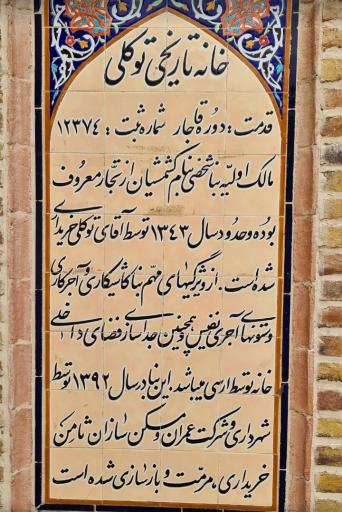 خانه تاریخی توکلی
قدمت: دوره قاجار شماره ثبت: ۱۲۳۷۴
مالک اولیه بنا شخصی بنام کشمشیان از تجار معروف
بوده و حدود سال ۱۳۴۳ توسط آقای توکلی خریداری
شده است. از ویژگیهای مهم بنا کاشیکاری و آجرکاری
و ستونهای آجری نفیس و همچنین جداسازی فضای داخلی
خانه توسط ارسی میباشد. این بنا در سال ۱۳۹۲ توسط
شهرداری و شرکت عمران و مسکن سازان ثامن
خریداری، مرمت و بازسازی شده است